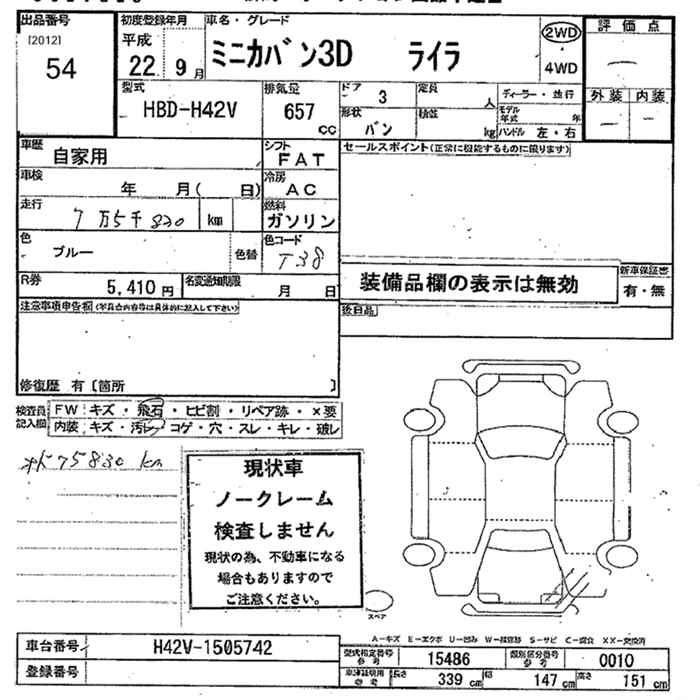 出品番号
[2012]
54
初度登録年月
平成
22年9月
車名・グレード
ミニカバン3D ライラ
2WD
4WD
評価点
外装 内装
型式
HBD-H42V
排気量
657
cc
ドア 3
形状 バン
定員 人
積載 kg
ディーラー・並行
モデル年式 年
ハンドル 左・右
車歴
自家用
シフト
FAT
セールスポイント(正常に機能するものに限ります)
車検
年 月( 日)
冷房
AC
走行
7万5千830 km
燃料
ガソリン
色
ブルー
色替
色コード
T38
R券
5,410円
名変通知期限
月 日
装備品欄の表示は無効
新車保証書
有・無
注意事項申告欄(不具合内容等は具体的に記入して下さい)
後日品
修復歴 有〔箇所 〕
検査員記入欄
FW キズ・飛石・ヒビ割・リペア跡・×要
内装 キズ・汚レ・コゲ・穴・スレ・キレ・破レ
75830 km
現状車
ノークレーム
検査しません
現状の為、不動車になる
場合もありますので
ご注意ください。
スペア
A-キズ E-エクボ U-凹み W-補修跡 S-サビ C-腐食 XX-交換済
車台番号
H42V-1505742
登録番号
型式指定番号参考
15486
類別区分番号参考
0010
車庫証明用参考
長さ 339 cm 幅 147 cm 高さ 151 cm